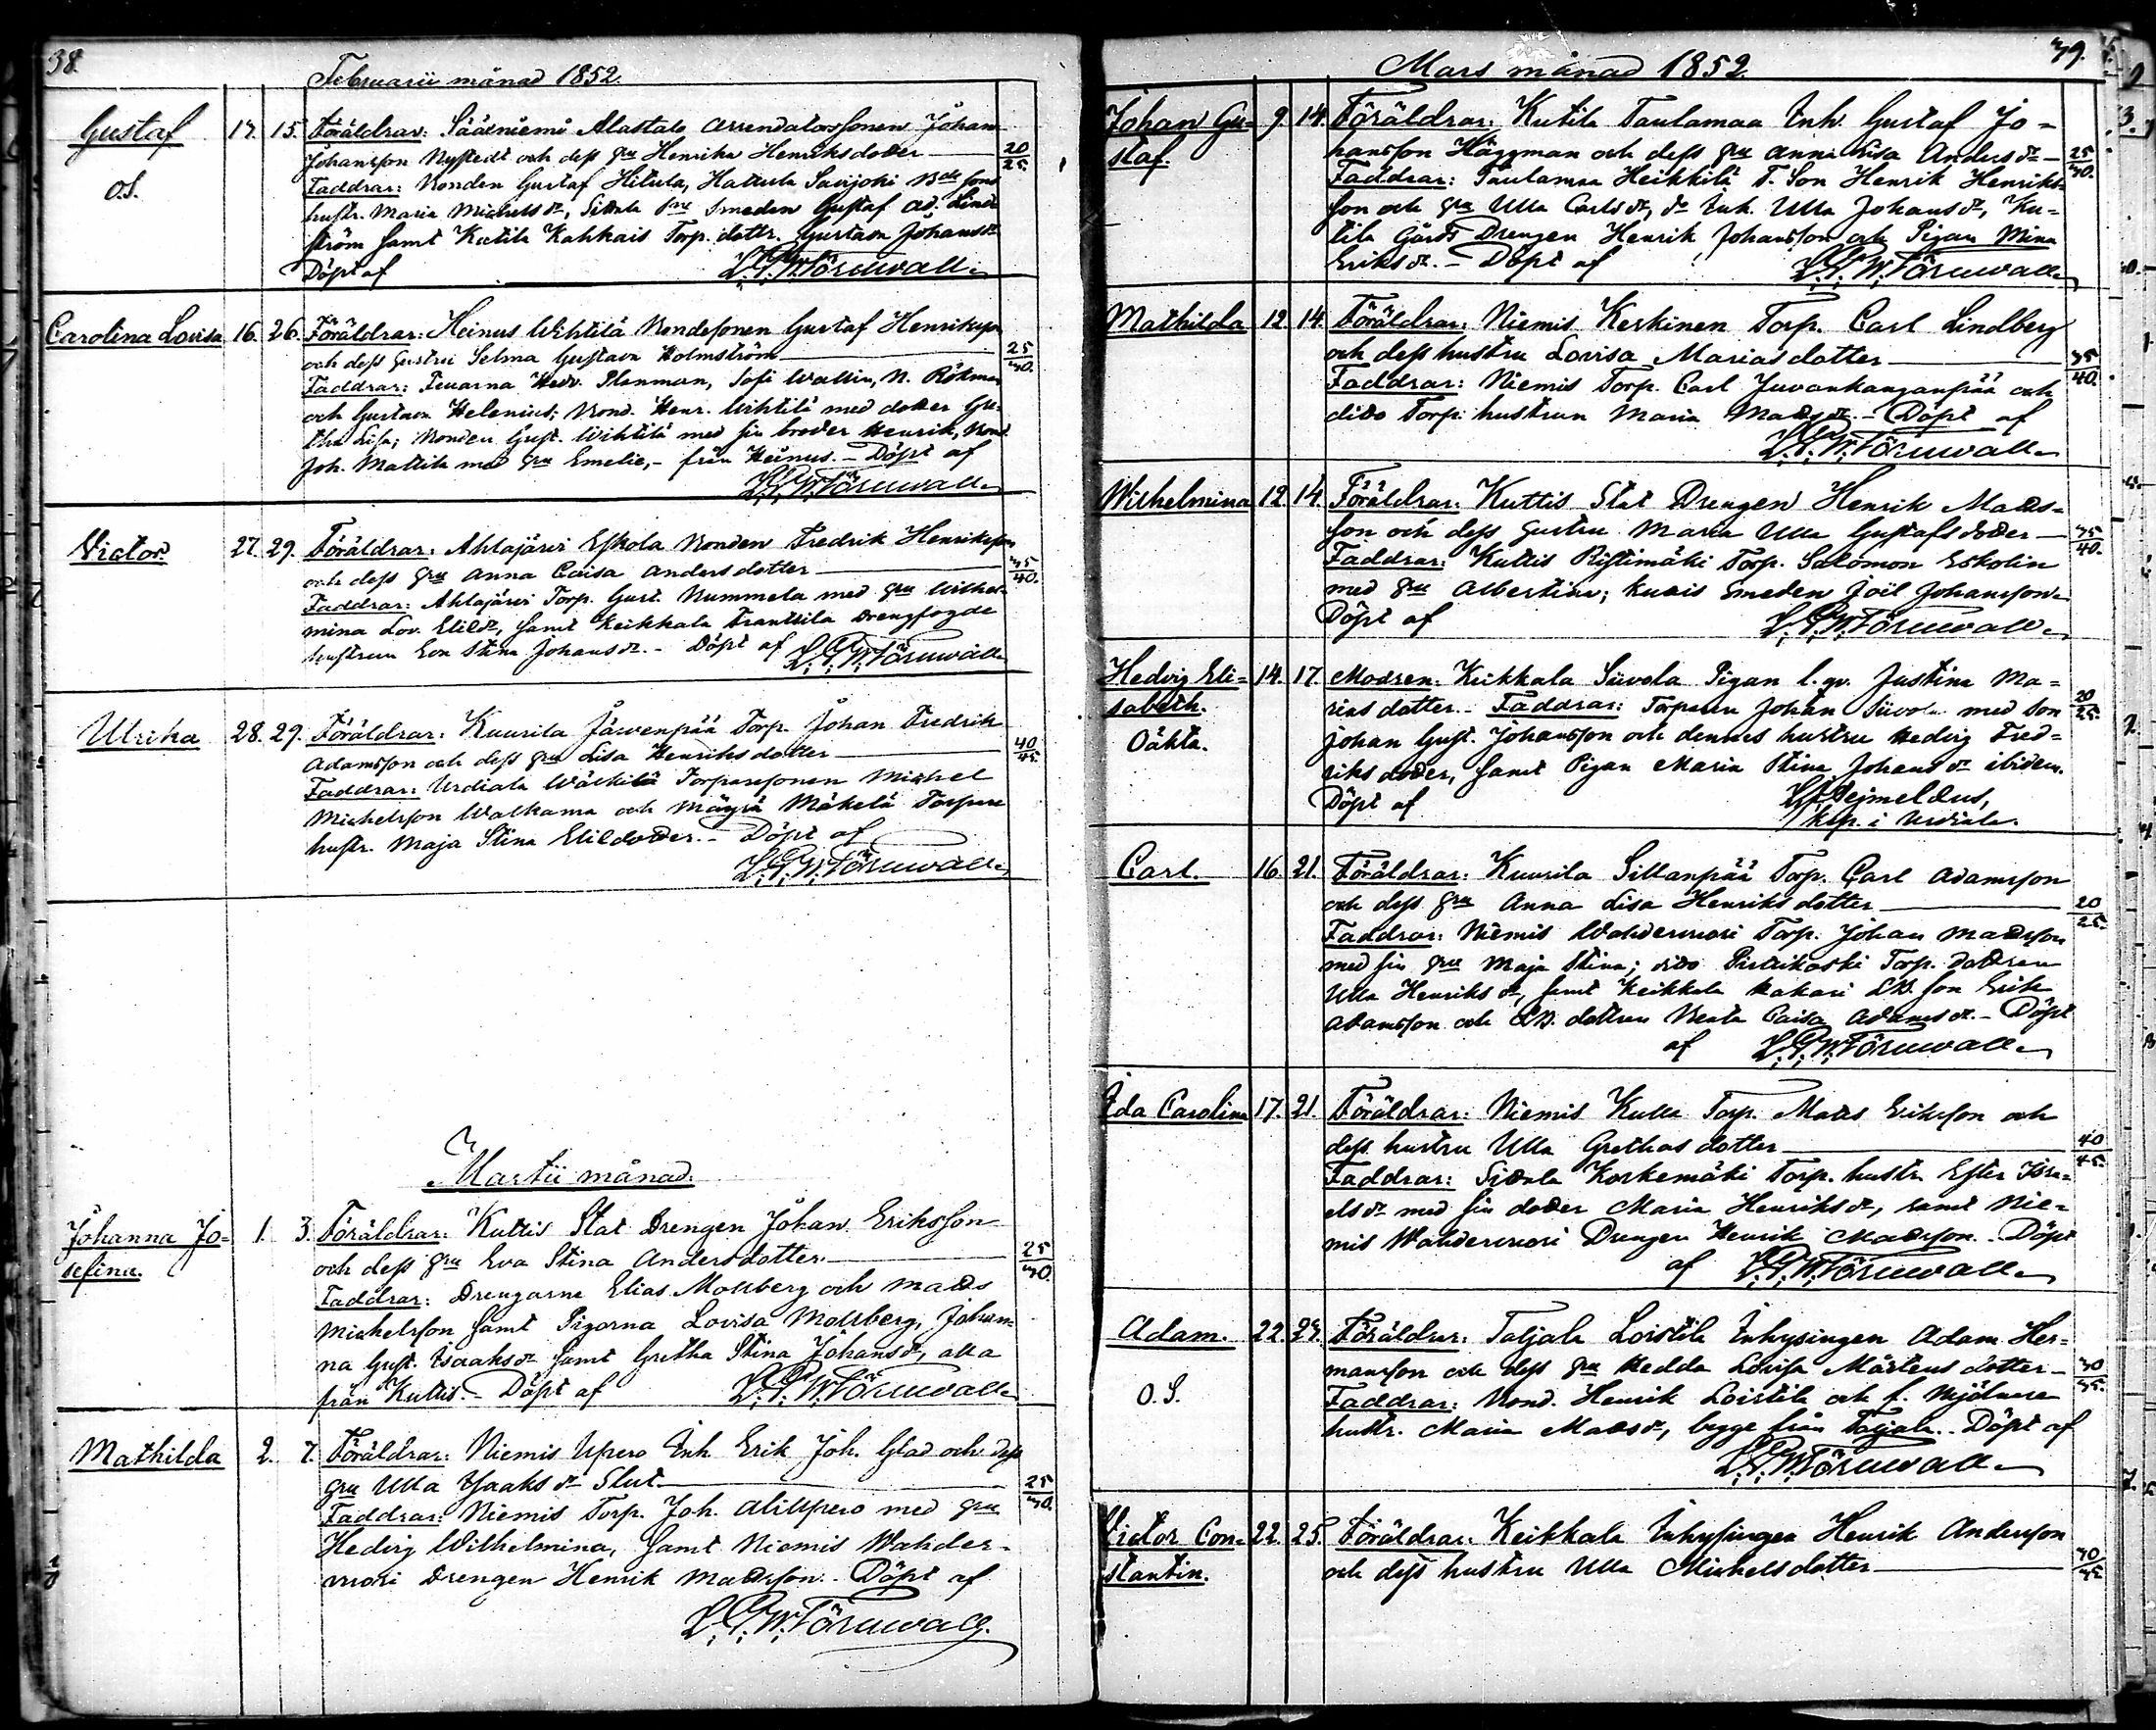 38.
Februarii månad 1852.
Gustaf 14. 15. Föräldrar: Sääeniemi Alastalo Arrendatorssonen Johan
Johansson Nystedt och dess hru Henrika Henriksdotter 20/25.
o.S. Faddrar: Bonden Gustaf Hitula, Hattula Savijoki Bde sons
hustr. Maria Michelsdr, Smeden Gustaf Ad. Lind-
ström samt Kutila Kahkais Torp. dottr. Gustava Johansdr
Döpt af L.G.W. Törnwall.
Carolina Lovisa 16. 26. Föräldrar: Heinus Wihtilä Bondesonen Gustaf Henriksson
och dess hustru Selma Gustava Holmström 25/30.
Faddrar: Hedv. Planman, Sofi Wallin, N. Rökman
och Gustava Helenius; Bond. Henr. Wihtilä med dotter Gre-
tha Lisa; Bonden Gust. Wihtilä med sin broder Henrik, Bond.
Joh. Mattila med hru Emelie, - från Heinus. - Döpt af
L.G.W. Törnwall.
Victor 27. 29. Föräldrar: Ahlajärvi Eskola Bonden Fredrik Henriksson
och dess hru Anna Caisa Andersdotter 35/40.
Faddrar: Ahlajärvi Torp. Gust. Nummela med hru Wilhel-
mina Lov. Elildr, samt Keikkala Franttila Drengfogde
hustrun Eva Stina Johansdr. - Döpt af L.G.W. Törnwall.
Ulrika 28. 29. Föräldrar: Kuurila Järvenpää Torp. Johan Fredrik
Adamsson och dess hru Lisa Henriksdotter 40/45.
Faddrar: Urdiala Wälkilä Torparesonen Michel
Michelsson Walkama och Mäyrä Mäkelä Torpare
hustr. Maja Stina Elildotter. - Döpt af
L.G.W. Törnwall.
Martii månad.
Johanna Jo- 1. 3. Föräldrar: Kuttis Stat Drengen Johan Eriksson
sefina. och dess hru Eva Stina Andersdotter 25/30.
Faddrar: Drengarne Elias Mollberg och Matts
Michelsson samt Pigorna Lovisa Mollberg, Johan-
na Gust. Isaaksdr samt Gretha Stina Johansdr, alla
från Kuttis. - Döpt af L.G.W. Törnwall.
Mathilda 2. 7. Föräldrar: Niemis Upero Inh. Erik Joh. Glad och dess
hru Ulla Isaaksdr Slut 25/30.
Faddrar: Niemis Torp. Joh. Aliupero med hru
Hedvig Wilhelmina, samt Niemis Wahder-
vuori Drengen Henrik Mattsson. - Döpt af
L.G.W. Törnwall.
39.
Mars månad 1852.
Johan Gu- 9. 14. Föräldrar: Kutila Taulamaa Inh. Gustaf Jo-
staf. hansson Häggman och dess hru Anna Lisa Andersdr - 25/30.
Faddrar: Taulamaa Heikkilä T. Son Henrik Henriks-
son och hru Ulla Carlsdr, dr Inh. Ulla Johansdr, Ku-
tila Gårds Drengen Henrik Johansson och Pigan Mina
Eriksdr. - Döpt af L.G.W. Törnwall.
Mathilda 12. 14. Föräldrar: Niemis Keskinen Torp. Carl Lindberg
och dess hustru Lovisa Mariasdotter 35/40.
Faddrar: Niemis Torp. Carl Juvankanganpää och
dito Torp. hustrun Maria Mattsdr. - Döpt af
L.G.W. Törnwall.
Wilhelmina 12. 14. Föräldrar: Kuttis Stat Drengen Henrik Matts-
son och dess hustru Maria Ulla Gustafsdotter 35/40.
Faddrar: Kuttis Ristimäki Torp. Salomon Eskolin
med hru Albertina; Smeden Joël Johansson.
Döpt af L.G.W. Törnwall.
Hedvig Eli- 14. 17. Modren: Keikkala Siivola Pigan l. qv. Justina Ma-
sabeth. riasdotter. - Faddrar: Torparen Johan Siivola med Son 20/25.
Oäkta. Johan Gust. Johansson och dennes hustru Hedvig Fred-
riksdotter, samt Pigan Maria Stina Johansdr ibidem.
Döpt af Heimelius,
kap. i Urdiala.
Carl. 16. 21. Föräldrar: Kuurila Sillanpää Torp. Carl Adamsson
och dess hru Anna Lisa Henriksdotter 20/25.
Faddrar: Niemis Wahdervuori Torp. Johan Mattsson
med sin hru Maja Stina; dito Torp. dottren
Ulla Henriksdr, samt Keikkala Kakari son Erik
Adamsson och dottren Beata Caisa Adamsdr. - Döpt
af L.G.W. Törnwall.
Ida Carolina 17. 21. Föräldrar: Niemis Kulla Torp. Matts Eriksson och
dess hustru Ulla Grethasdotter 40/45.
Faddrar: Sittala Korkemäki Torp. hustr. Ester Isra-
elsdr med sin dotter Maria Henriksdr, samt Nie-
mis Wahdervuori Drengen Henrik Mattsson. - Döpt
af L.G.W. Törnwall.
Adam. 22. 24. Föräldrar: Taljala Loistila Inhysingen Adam Her-
mansson och dess hru Hedda Lovisa Mårtensdotter - 30/35.
O.S. Faddrar: Bond. Henrik Loistila och f. Mjölnare
hustr. Maria Mattsdr, begge från Taljala. - Döpt af
L.G.W. Törnwall.
Victor Con- 22. 25. Föräldrar: Keikkala Inhysingen Henrik Andersson
stantin. och dess hustru Ulla Michelsdotter 30/35.